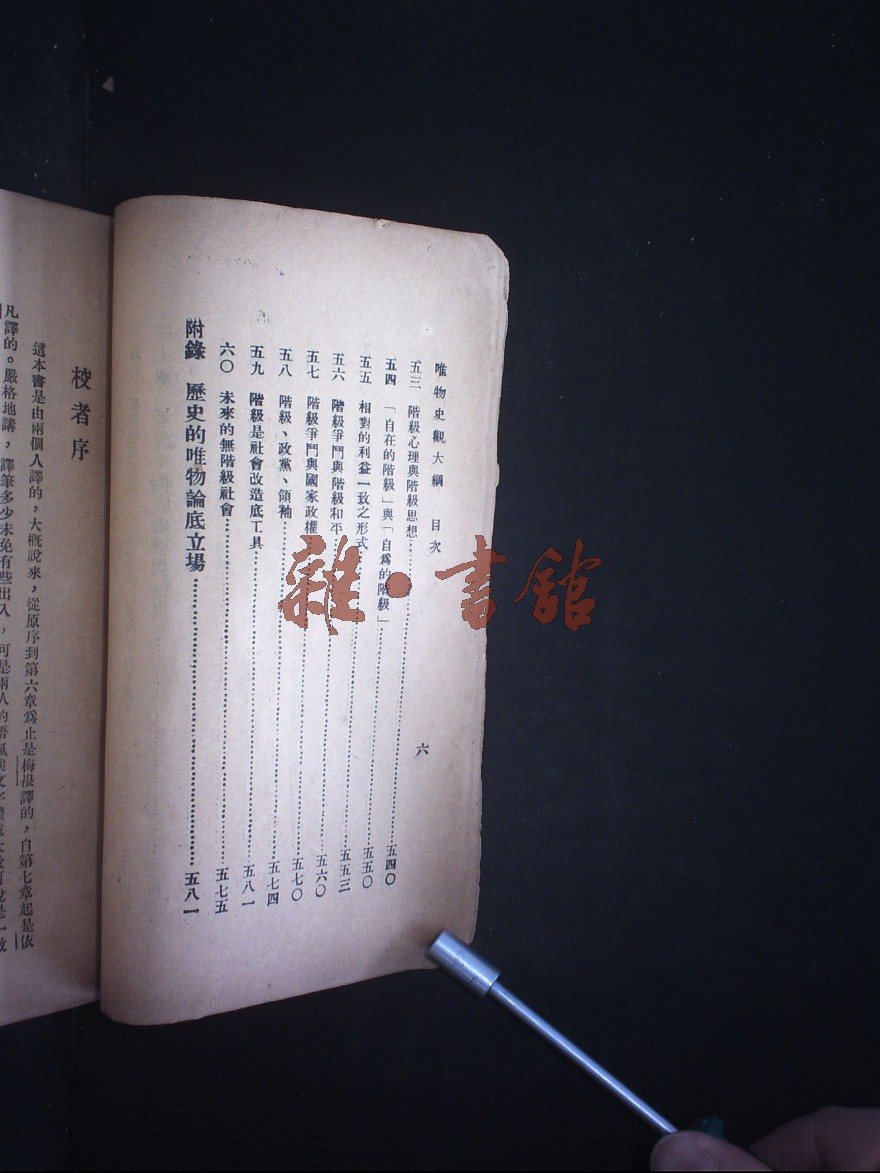 唯物史觀大綱　目次
六
五三　階級心理與階級思想……五四〇
五四　「自在的階級」與「自爲的階級」……五五〇
五五　相對的利益一致之形式……五五三
五六　階級爭鬥與階級和平……五六〇
五七　階級爭鬥與國家政權……五七〇
五八　階級、政黨、領袖……五七四
五九　階級是社會改造底工具……五八一
六〇　未來的無階級社會……五七五
附錄　歷史的唯物論底立場……五八一
校者序
這本書是由兩個人譯的，大概說來，從原序到第六章爲止是梅根譯的，自第七章起是依
凡譯的。嚴格地講，譯筆多少未免有些出入，可是兩人的語氣與文字
雜·書館